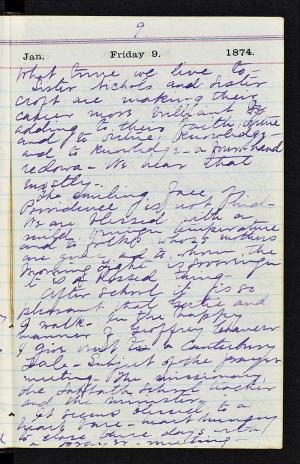 9
Jan. Friday 9. 1874.
What time we live to
Sister Nichols and Sister
Croft are making their
career more brilliant by
adding to their faith virtue
and to virtue knowledge
and to knowledge a four hand
redowa - We hear that
mostly.
The smiling face of
Providence is not hid -
We are blessed with a
mild temperature
and to folks whose mothers
are and to whom the
morning light is
it is a blessed thing -
After school it is so
pleasant that Gertie and
I walk. In the happy
manner of Geoffrey Chaucer
I give to a Canterbury
Tale - Subject of the prayer
meeting - The missionary
the Sabbath School teacher
and the minister.
It seems blessed to a
heart
to close three days with
a prayer - meeting -